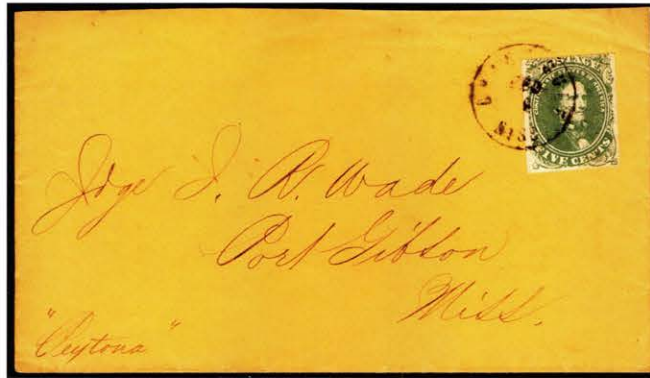 POSTAGE
FIVE CENTS
MISS
Jdge J. R. Wade
Port Gibson
Miss.
"Peytona"